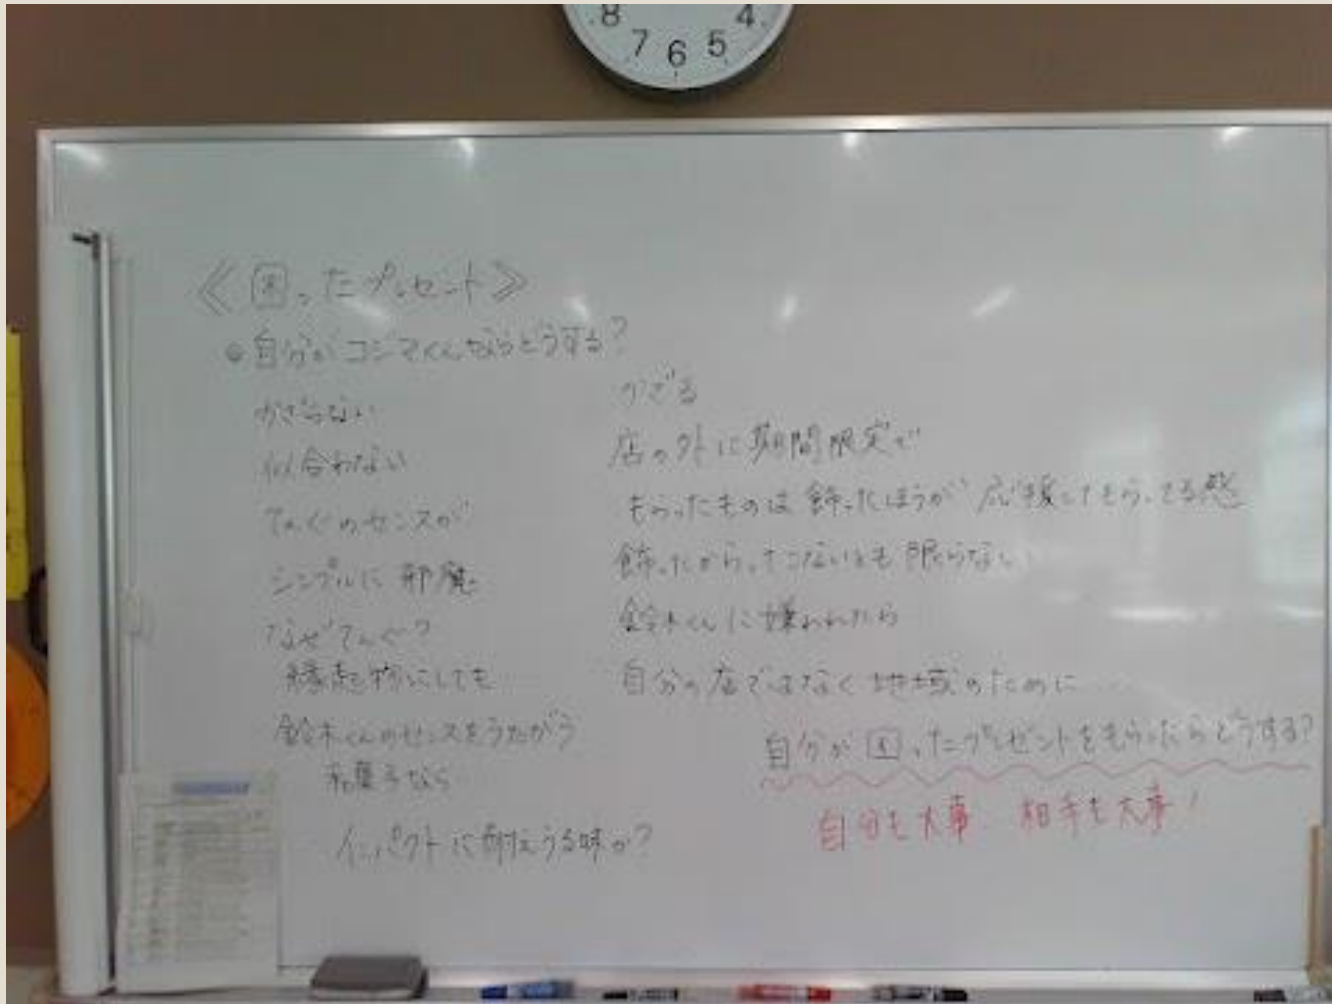 8 7 6 5 4
《困ったプレゼント》
●自分がコジマくんならどうする?
かざらない
似合わない
てんぐのセンスが
シンプルに邪魔
なぜてんぐ?
縁起物にしても
鈴木くんのセンスをうたがう
和菓子なら
インパクトに耐えうる味か?
かざる
店の外に期間限定で
もらったものは飾ったほうが応援してもらってる感
飾ったからってこないとも限らない
鈴木くんに嫌われたら
自分の店ではなく地域のために
自分が困ったプレゼントをもらったらどうする?
自分も大事 相手も大事!